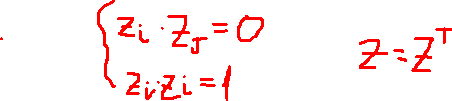 z_i · z_J = 0
z_i · z_i = 1
z = z^T